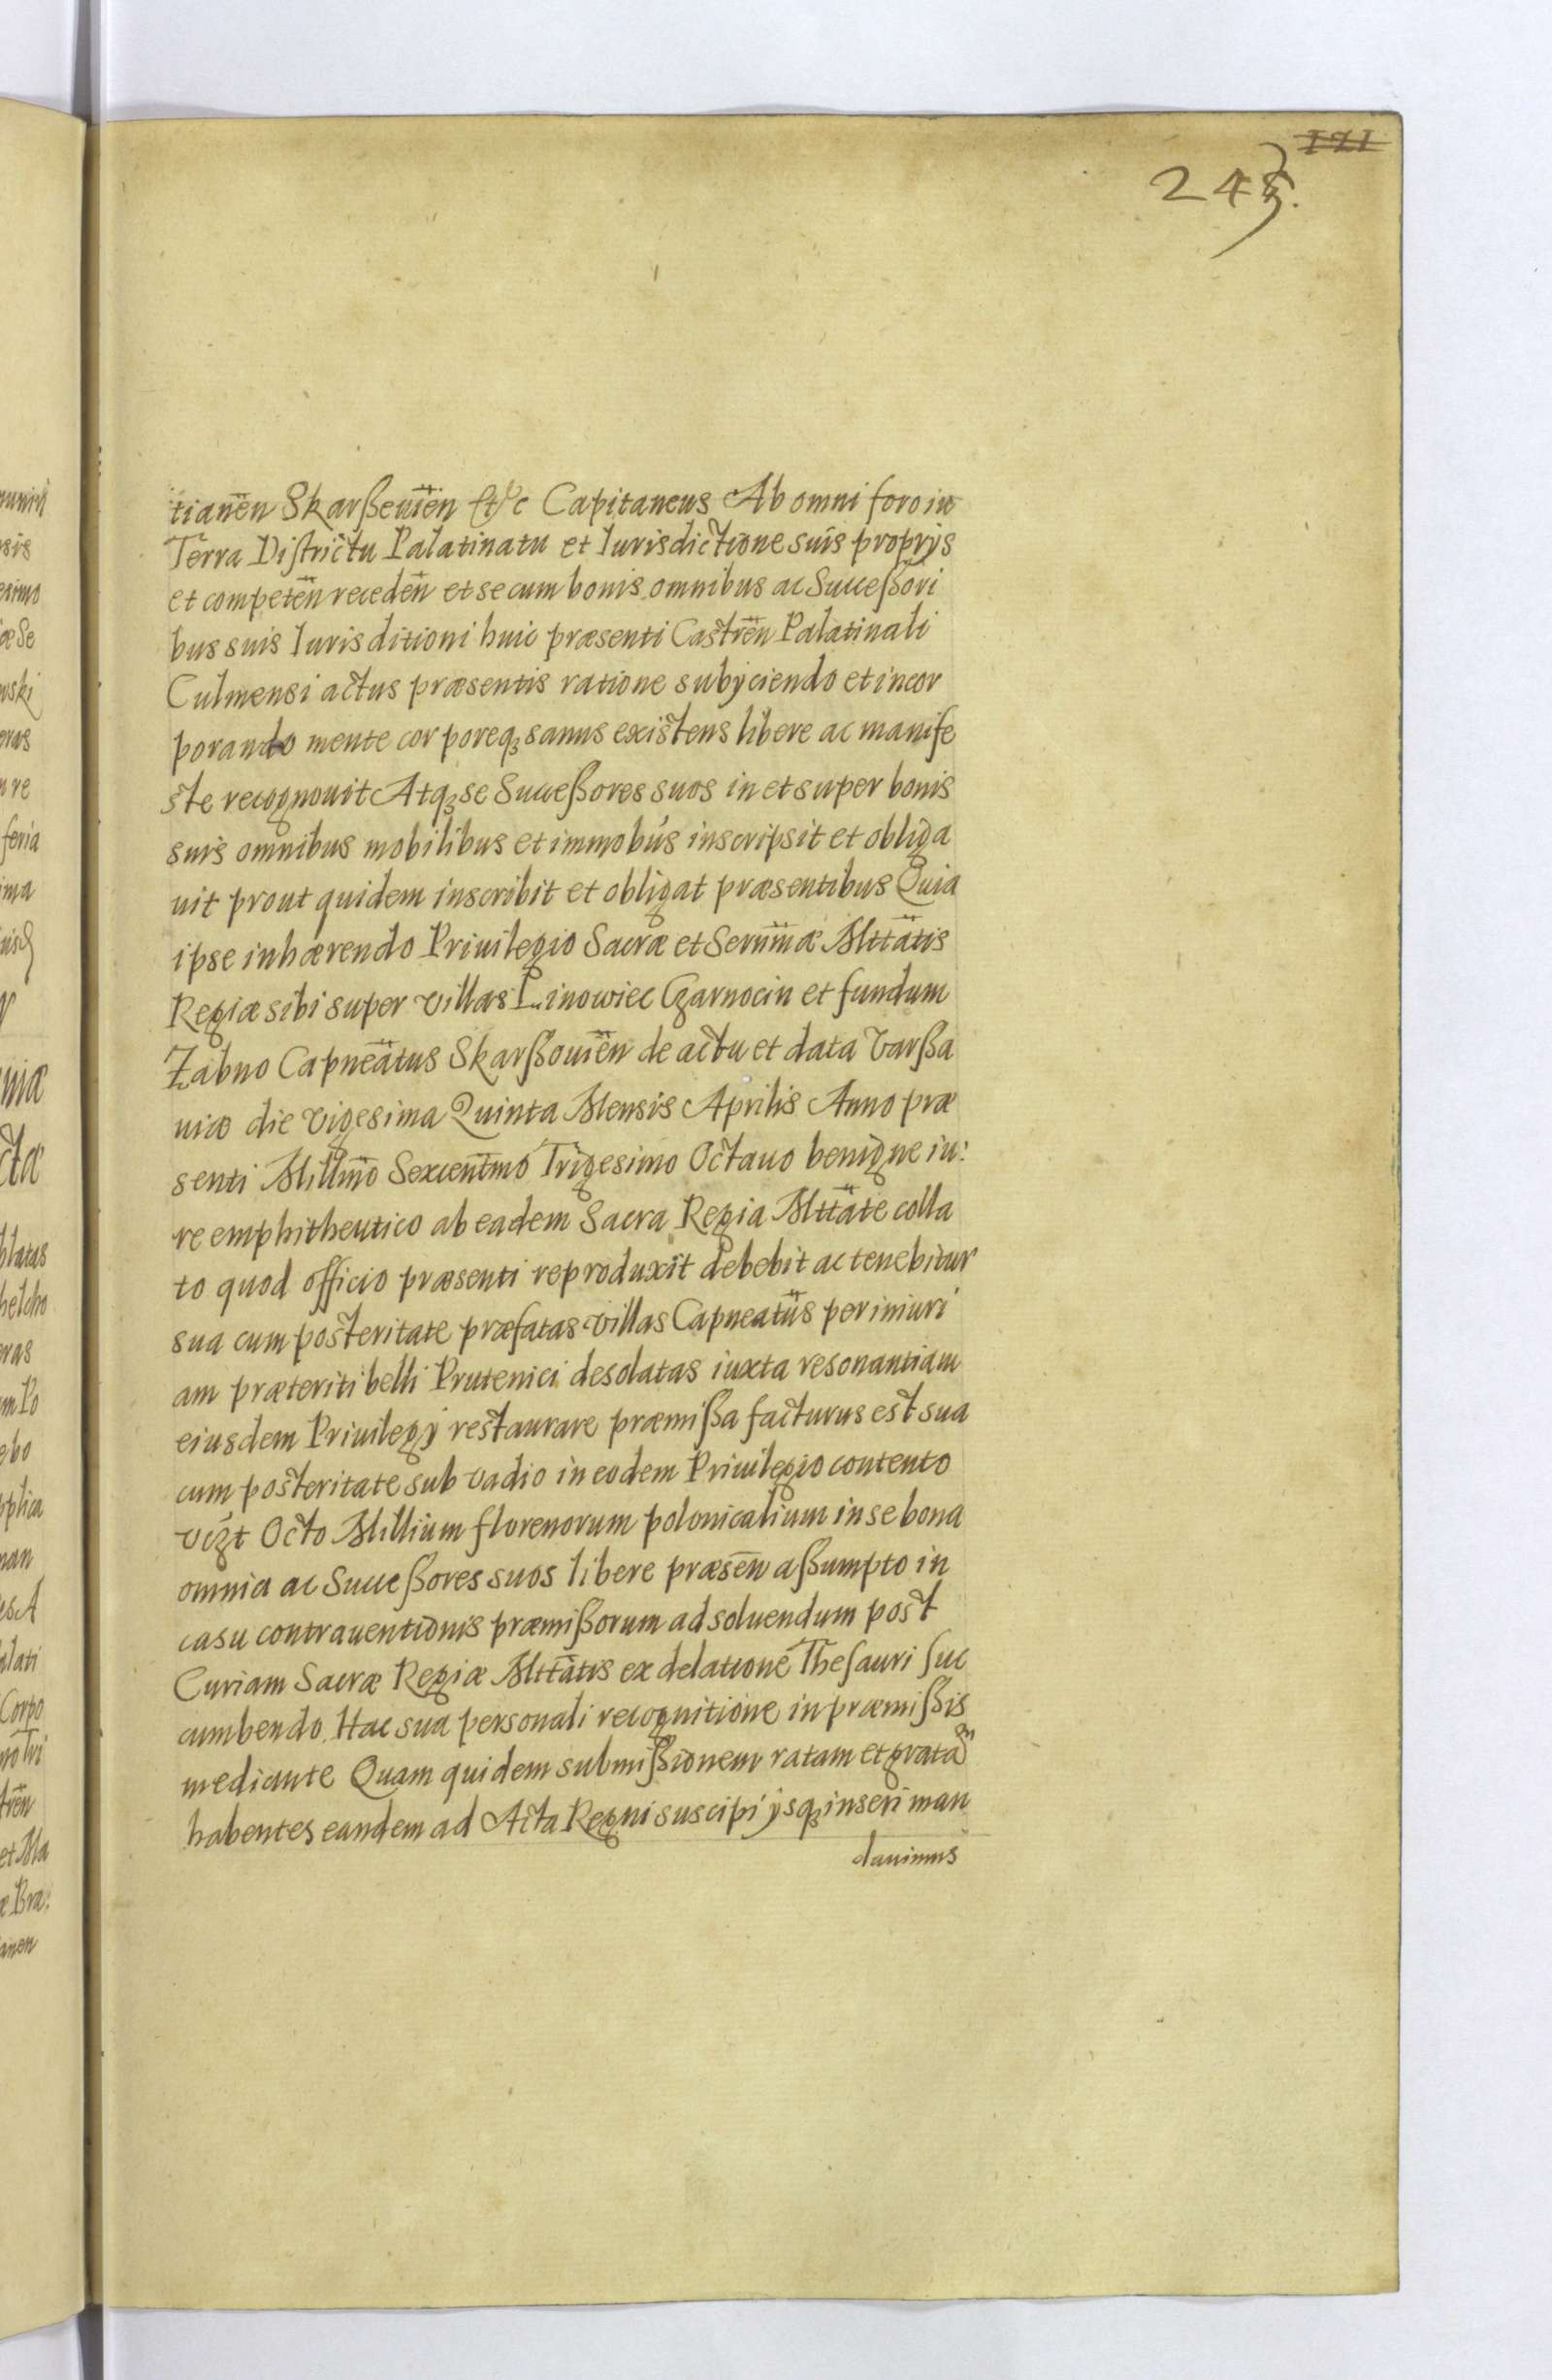 121
245.
tianen̄ Skarßeuien̄ Etc Capitaneus Ab omni foro in
Terra Districtu Palatinatu et Iurisdictione suis proprys
et competen̄ receden̄ et se cum bonis omnibus ac Succeßori
bus suis Iurisditioni huic præsenti Castren̄ Palatinali
Culmensi actus præsentis ratione subyciendo et incor
porando mente corporeqꝫ sanus existens libere ac manife
ste recognouit Atqꝫ se Succeßores suos in et super bonis
suis omnibus mobilibus et immobus inscripsit et obliga
uit prout quidem inscribit et obligat præsentibus Quia
ipse inhærendo Priuilegio Sacræ et Sermæ Mttatis
Regiæ sibi super villas Linowiec Czarnocin et fundum
Zabno Capneatus Skarßouien̄ de actu et data Varßa
uiæ die vigesima Quinta Mensis Aprilis Anno præ
senti Millmo Sexcentmo Trigesimo Octauo benigne iu:
re emphitheutico ab eadem Sacra Regia Mttate colla
to quod officio præsenti reproduxit debebit ac tenebitur
sua cum posteritate præfatas villas Capneatus per iniuri
am præteriti belli Prutenici desolatas iuxta resonantiam
eiusdem Priuilegy restaurare præmißa facturus est sua
cum posteritate sub vadio in eodem Priuilegio contento
vigt Octo Millium florenorum polonicalium in se bona
omnia ac Succeßores suos libere præsen̄ aßumpto in
casu contrauentionis præmißorum ad soluendum post
Curiam Sacræ Regiæ Mttatis ex delatione Thesauri suc
cumbendo Hac sua personali recognitione in præmißis
mediante Quam quidem submißionem ratam et gratam
habentes eandem ad Acta Regni suscipi ysqꝫ inseri man
dauimus